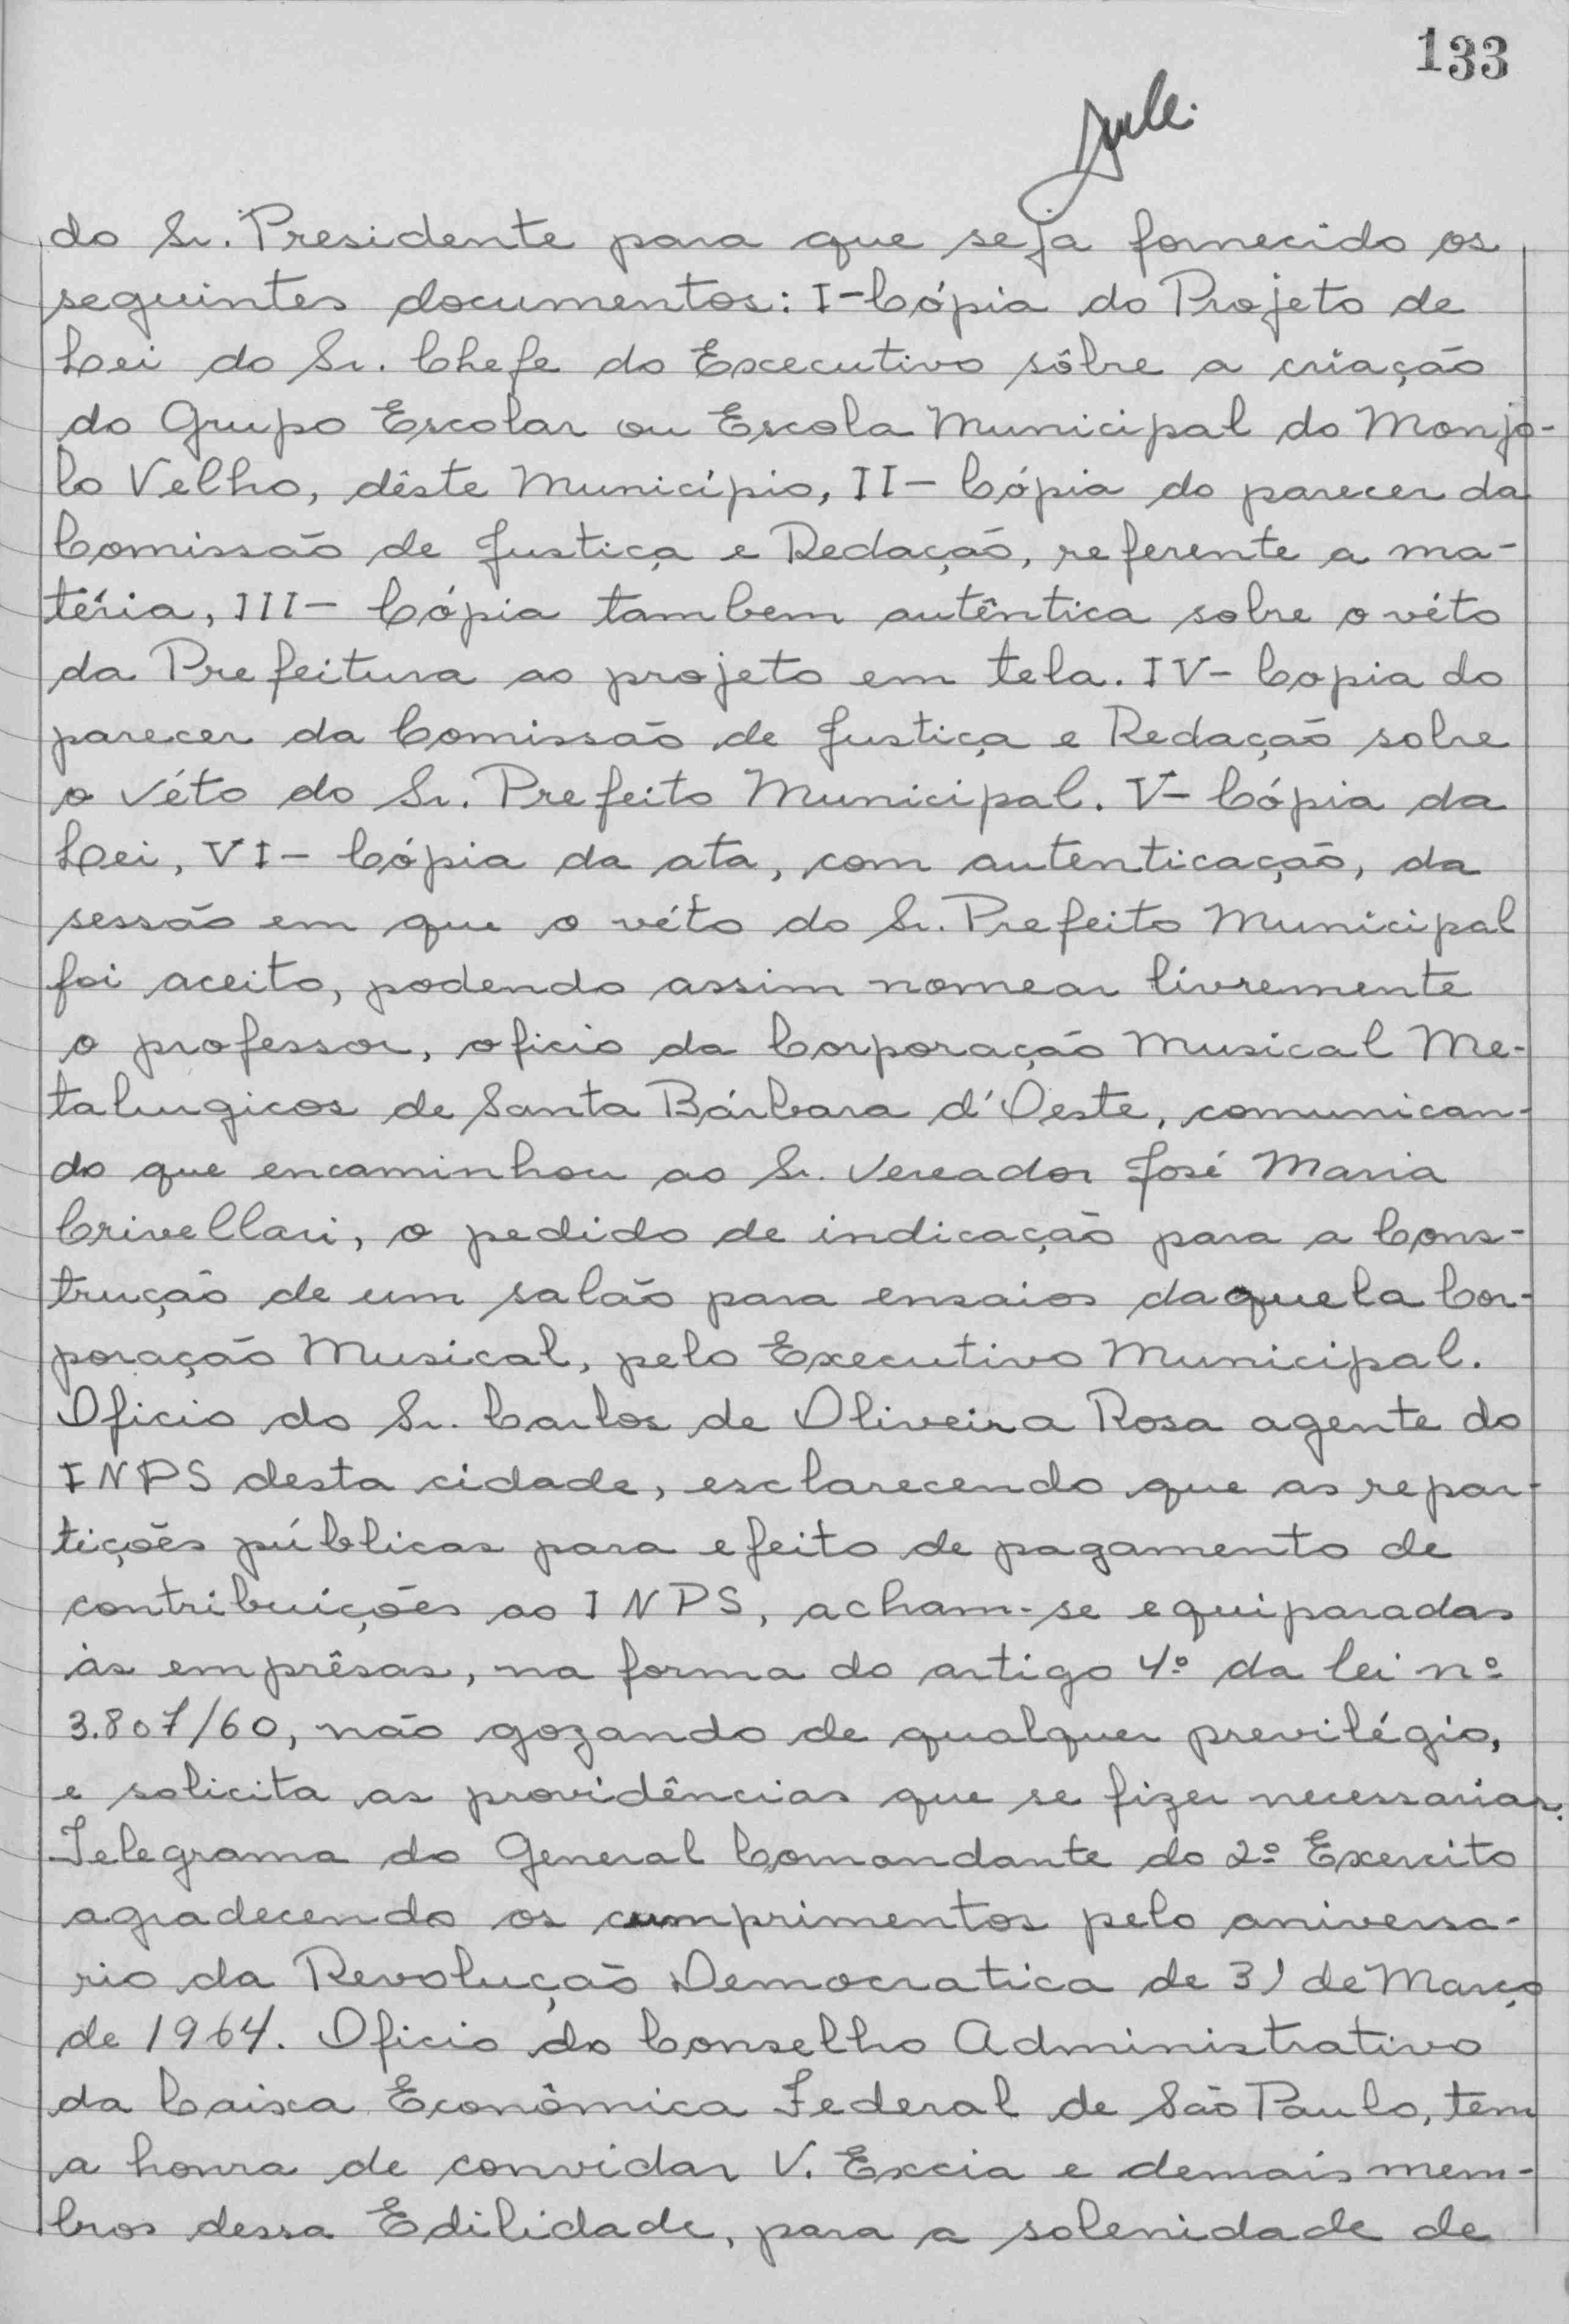 133
do Sr. Presidente para que seja fornecido os
seguintes documentos: I-Cópia do Projeto de
Lei do Sr. Chefe do Excecutivo sôbre a criação
do Grupo Escolar ou Escola Municipal do Monjo-
lo Velho, dêste Município, II- Cópia do parecer da
Comissão de Justiça e Redação, referente a ma-
téria, III- Cópia tambem autêntica sobre o véto
da Prefeitura ao projeto em tela. IV- Copia do
parecer da Comissão de Justiça e Redação sobre
o véto do Sr. Prefeito Municipal. V- Cópia da
Lei, VI- Cópia da ata, com autênticação, da
sessão em que o véto do Sr. Prefeito Municipal
foi aceito, podendo assim nomear livremente
o professor, oficio da Corporação Musical Me-
talurgicos de Santa Bárbara d'Oeste, comunican-
do que encaminhou ao Sr. Vereador José Maria
Crivellari, o pedido de indicação para a Cons-
trução de um salão para ensaios daquela Cor-
poração Musical, pelo Executivo Municipal.
Oficio do Sr. Carlos de Oliveira Rosa agente do
INPS desta cidade, esclarecendo que as repar-
tições públicas para efeito de pagamento de
contribuições ao INPS, acham-se equiparadas
às emprêsas, na forma do artigo 4º da lei nº
3.807/60, não gozando de qualquer previlégio,
e solicita as providências que se fizer necessarias.
Telegrama do General Comandante do 2º Exercito
agradecendo os cumprimentos pelo aniversa-
rio da Revolução Democratica de 31 de Março
de 1964. Oficio do Conselho Administrativo
da Caixa Econômica Federal de São Paulo, tem
a honra de convidar V. Excia e demais mem-
bros dessa Edilidade, para a solenidade de